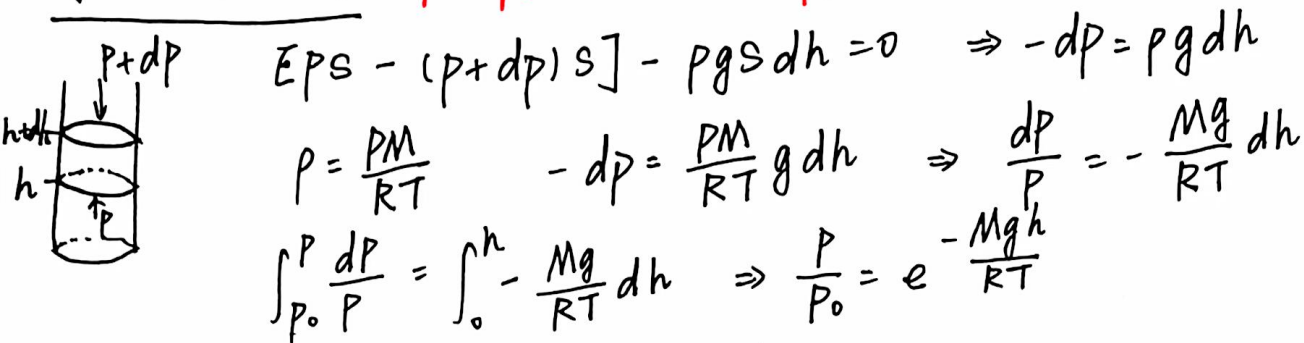 p+dp
[pS - (p+dp)S] - ρgSdh = 0 ⇒ -dp = ρgdh
h+dh
h
p
ρ = PM/RT - dp = PM/RT gdh ⇒ dP/P = - Mg/RT dh
∫_{P₀}^{P} dP/P = ∫_0^h - Mg/RT dh ⇒ P/P₀ = e^{-Mgh/RT}